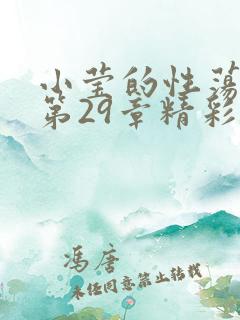 小莹的性荡
第29章精彩
冯唐
未经同意禁止转载